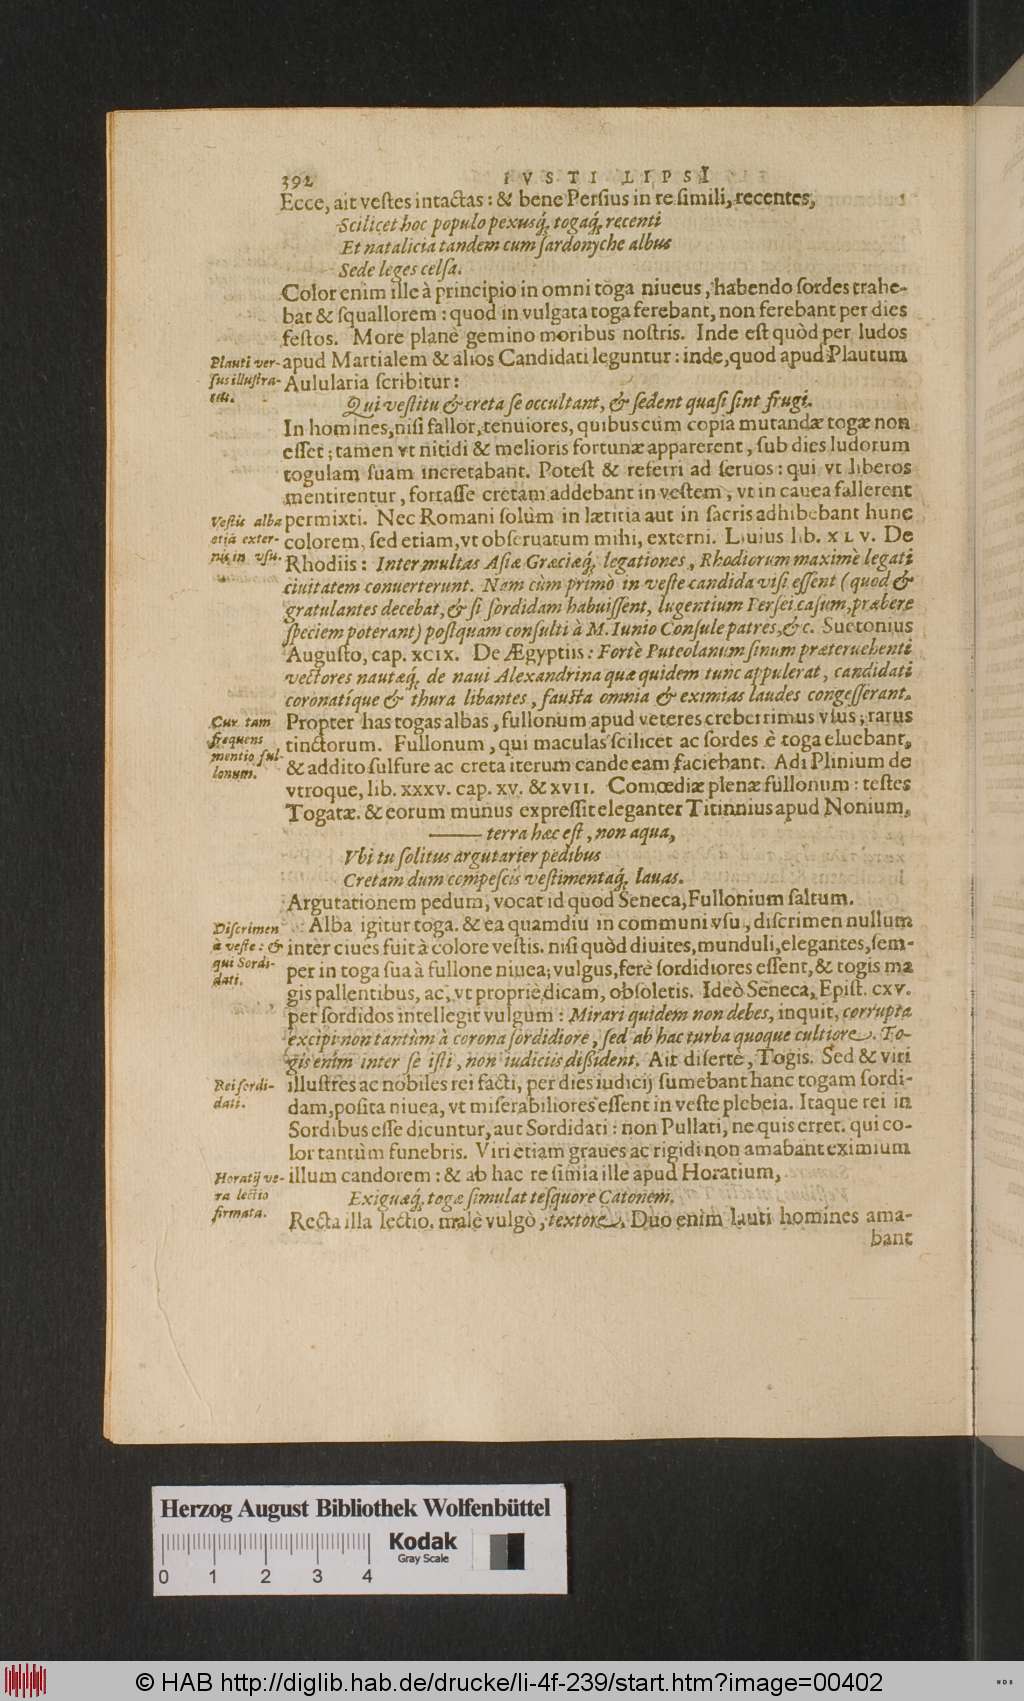 392 IVSTI LIPSI
Ecce, ait vestes intactas: & bene Persius in re simili, recentes,
Scilicet hoc populo pexusq́, togaq́, recenti
Et natalicia tandem cum sardonyche albus
Sede leges celsa.
Color enim ille à principio in omni toga niueus, habendo sordes trahe-
bat & squallorem: quod in vulgata toga ferebant, non ferebant per dies
festos. More planè gemino moribus nostris. Inde est quòd per ludos
Plauti ver-
sus illustra-
ti.
apud Martialem & alios Candidati leguntur: inde, quod apud Plautum
Aulularia scribitur:
Qui vestitu & creta se occultant, & sedent quasi sint frugi.
In homines, nisi fallor, tenuiores, quibus cùm copia mutandæ togæ non
esset; tamen vt nitidi & melioris fortunæ apparerent, sub dies ludorum
togulam suam incretabant. Potest & referri ad seruos: qui vt liberos
mentirentur, fortasse cretam addebant in vestem, vt in cauea fallerent
Vestis alba
etiã exter-
nis in vsu.
permixti. Nec Romani solùm in lætitia aut in sacris adhibebant hunc
colorem, sed etiam, vt obseruatum mihi, externi. Liuius lib. XLV. De
Rhodiis: Inter multas Asiæ Græciæq́, legationes, Rhodiorum maximè legati
ciuitatem conuerterunt. Nam cùm primò in veste candida visi essent (quod &
gratulantes decebat, & si sordidam habuissent, lugentium Persei casum, præbere
speciem poterant) postquam consulti à M. Iunio Consule patres, &c. Suetonius
Augusto, cap. XCIX. De Ægyptiis: Fortè Puteolanum sinum præteruehenti
vectores nautæq́, de naui Alexandrina quæ quidem tunc appulerat, candidati
coronatíque & thura libantes, fausta omnia & eximias laudes congesserant.
Cur tam
frequens
mentio ful-
lonum.
Propter has togas albas, fullonum apud veteres creberrimus vsus; rarus
tinctorum. Fullonum, qui maculas scilicet ac sordes è toga eluebant,
& addito sulfure ac creta iterum candeeam faciebant. Adi Plinium de
vtroque, lib. XXXV. cap. XV. & XVII. Comœdiæ plenæ fullonum: testes
Togatæ. & eorum munus expressit eleganter Titinnius apud Nonium,
——— terra hæc est, non aqua,
Vbi tu solitus argutarier pedibus
Cretam dum compescis vestimentaq́, lauas.
Argutationem pedum, vocat id quod Seneca, Fullonium saltum.
Discrimen
à veste: &
qui Sordi-
dati.
Alba igitur toga. & ea quamdiu in communi vsu, discrimen nullum
inter ciues fuit à colore vestis. nisi quòd diuites, munduli, elegantes, sem-
per in toga sua à fullone niuea; vulgus, ferè sordidiores essent, & togis ma
gis pallentibus, ac, vt propriè dicam, obsoletis. Ideò Seneca, Epist. CXV.
per sordidos intellegit vulgum: Mirari quidem non debes, inquit, corrupta
excipi non tantùm à corona sordidiore, sed ab hac turba quoque cultiore. To-
gis enim inter se isti, non iudiciis dißident. Ait disertè, Togis. Sed & viri
Rei sordi-
dati.
illustres ac nobiles rei facti, per dies iudicij sumebant hanc togam sordi-
dam, posita niuea, vt miserabiliores essent in veste plebeia. Itaque rei in
Sordibus esse dicuntur, aut Sordidati: non Pullati, ne quis erret. qui co-
lor tantùm funebris. Viri etiam graues ac rigidi non amabant eximium
Horatij ve-
ra lectio
firmata.
illum candorem: & ab hac re simia ille apud Horatium,
Exiguæq́, togæ simulat tesquore Catonem.
Recta illa lectio. malè vulgò, textore. Duo enim lauti homines ama-
bant
Herzog August Bibliothek Wolfenbüttel
Kodak
Gray Scale
0 1 2 3 4
© HAB http://diglib.hab.de/drucke/li-4f-239/start.htm?image=00402